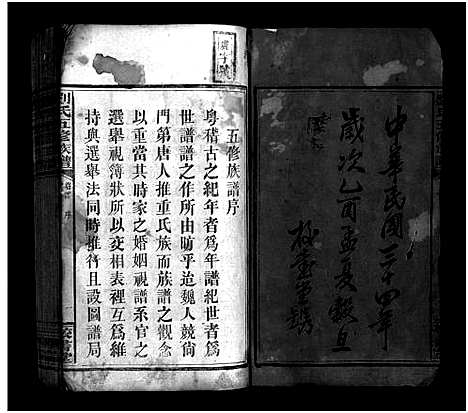 中華民國三十四年
歲次乙酉孟夏穀旦
五修族譜序
粵稽古之紀年者為年譜紀世者為
世譜譜之作所由昉乎迨魏人競尚
門第唐人推重氏族而族譜之觀念
以重當其時家之婚姻視譜系官之
選舉視簿狀所以交相表裡互為維
持與選舉法同時推行且設圖譜局
劉氏五修族譜
序